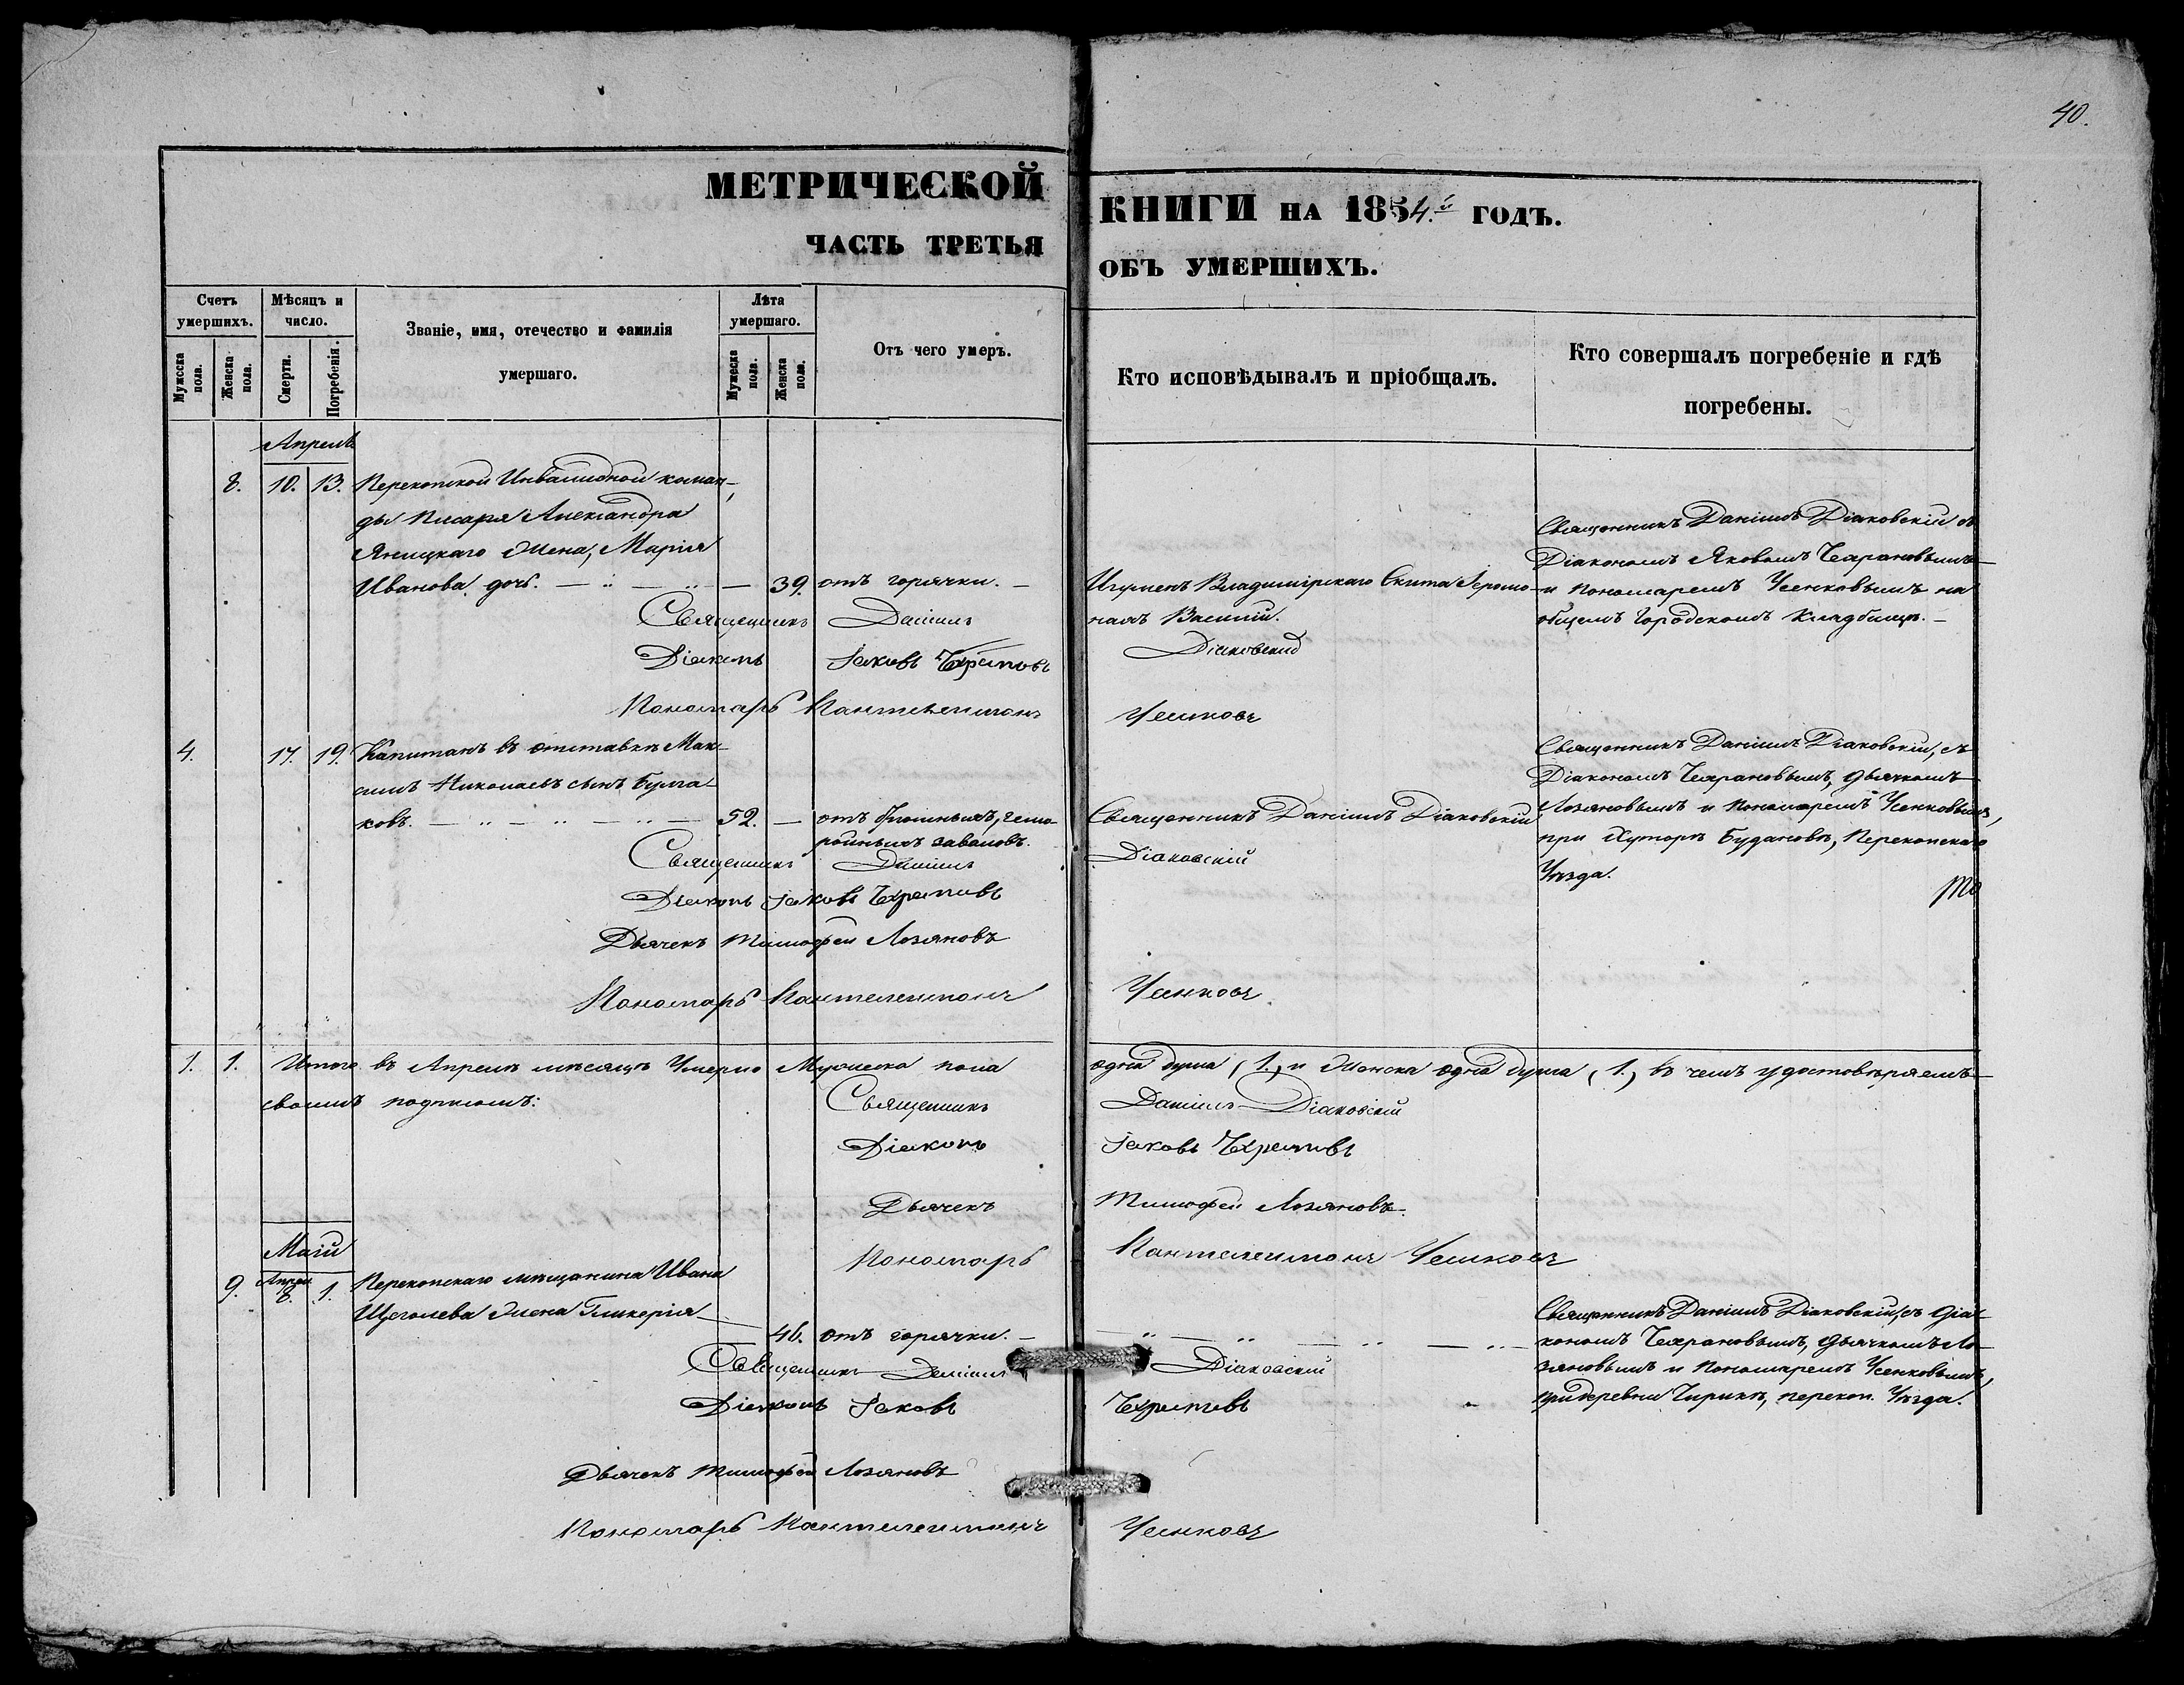 40.
МЕТРИЧЕСКОЙ
КНИГИ НА 1854.й ГОДЪ.
ЧАСТЬ ТРЕТЬЯ
ОБЪ УМЕРШИХЪ.
Счетъ умершихъ.
Мужеска пола.
Женска пола.
Мѣсяцъ и число.
Смерти.
Погребенія.
Званіе, имя, отечество и фамилія
умершаго.
Лѣта умершаго.
Мужеска пола.
Женска пола.
Отъ чего умеръ.
Кто исповѣдывалъ и пріобщалъ.
Кто совершалъ погребеніе и гдѣ
погребены.
Апрель
8. 10. 13. Перекопской Инвалидной коман-
ды писаря Александра
Яницкаго жена, Марія
Иванова дочь. 39. отъ горячки.
Игуменъ Владимірскаго Скита Іеромо-
нахъ Василій.
Священникъ Даніилъ Діаковскій съ
Діакономъ Яковомъ Чехрановымъ
и пономаремъ Усенковымъ на
общемъ городскомъ кладбищѣ.
Священникъ Даніилъ Діаковскій
Діаконъ Іаковъ Чехрановъ
Пономарь Пантелеимонъ Усенковъ
4. 17. 19. Капитанъ въ отставкѣ Мак-
симъ Николаевъ сынъ Булга-
ковъ. 52. отъ брюшныхъ, гемо-
ройныхъ заваловъ.
Священникъ Даніилъ Діаковскій
Священникъ Даніилъ Діаковскій, съ
Діакономъ Чехрановымъ, дьячкомъ
Лозяновымъ и пономаремъ Усенковымъ,
при Хуторѣ Будановкѣ, Перекопскаго
Уѣзда.
Священникъ Даніилъ Діаковскій
Діаконъ Іаковъ Чехрановъ
Дьячекъ Тимофей Лозяновъ
Пономарь Пантелеимонъ Усенковъ
1. 1. Итого въ Апрелѣ мѣсяцѣ Умерло Мужеска пола одна душа (1.) и Женска одна душа (1.) въ чемъ удостовѣряемъ
своимъ подписомъ:
Священникъ Даніилъ Діаковскій
Діаконъ Іаковъ Чехрановъ
Дьячекъ Тимофей Лозяновъ.
Пономарь Пантелеимонъ Усенковъ
Маій
9. Апрел. 8. 1. Перекопскаго мѣщанина Ивана
Щеголева жена Гликерія
46. отъ горячки.
Священникъ Даніилъ Діаковскій, съ діа-
кономъ Чехрановымъ, дьячкомъ Ло-
зяновымъ и пономаремъ Усенковымъ,
при деревни Чирикѣ, перекоп. Уѣзда.
Священникъ Даніилъ Діаковскій
Діаконъ Іаковъ Чехрановъ
Дьячекъ Тимофей Лозяновъ
Пономарь Пантелеимонъ Усенковъ